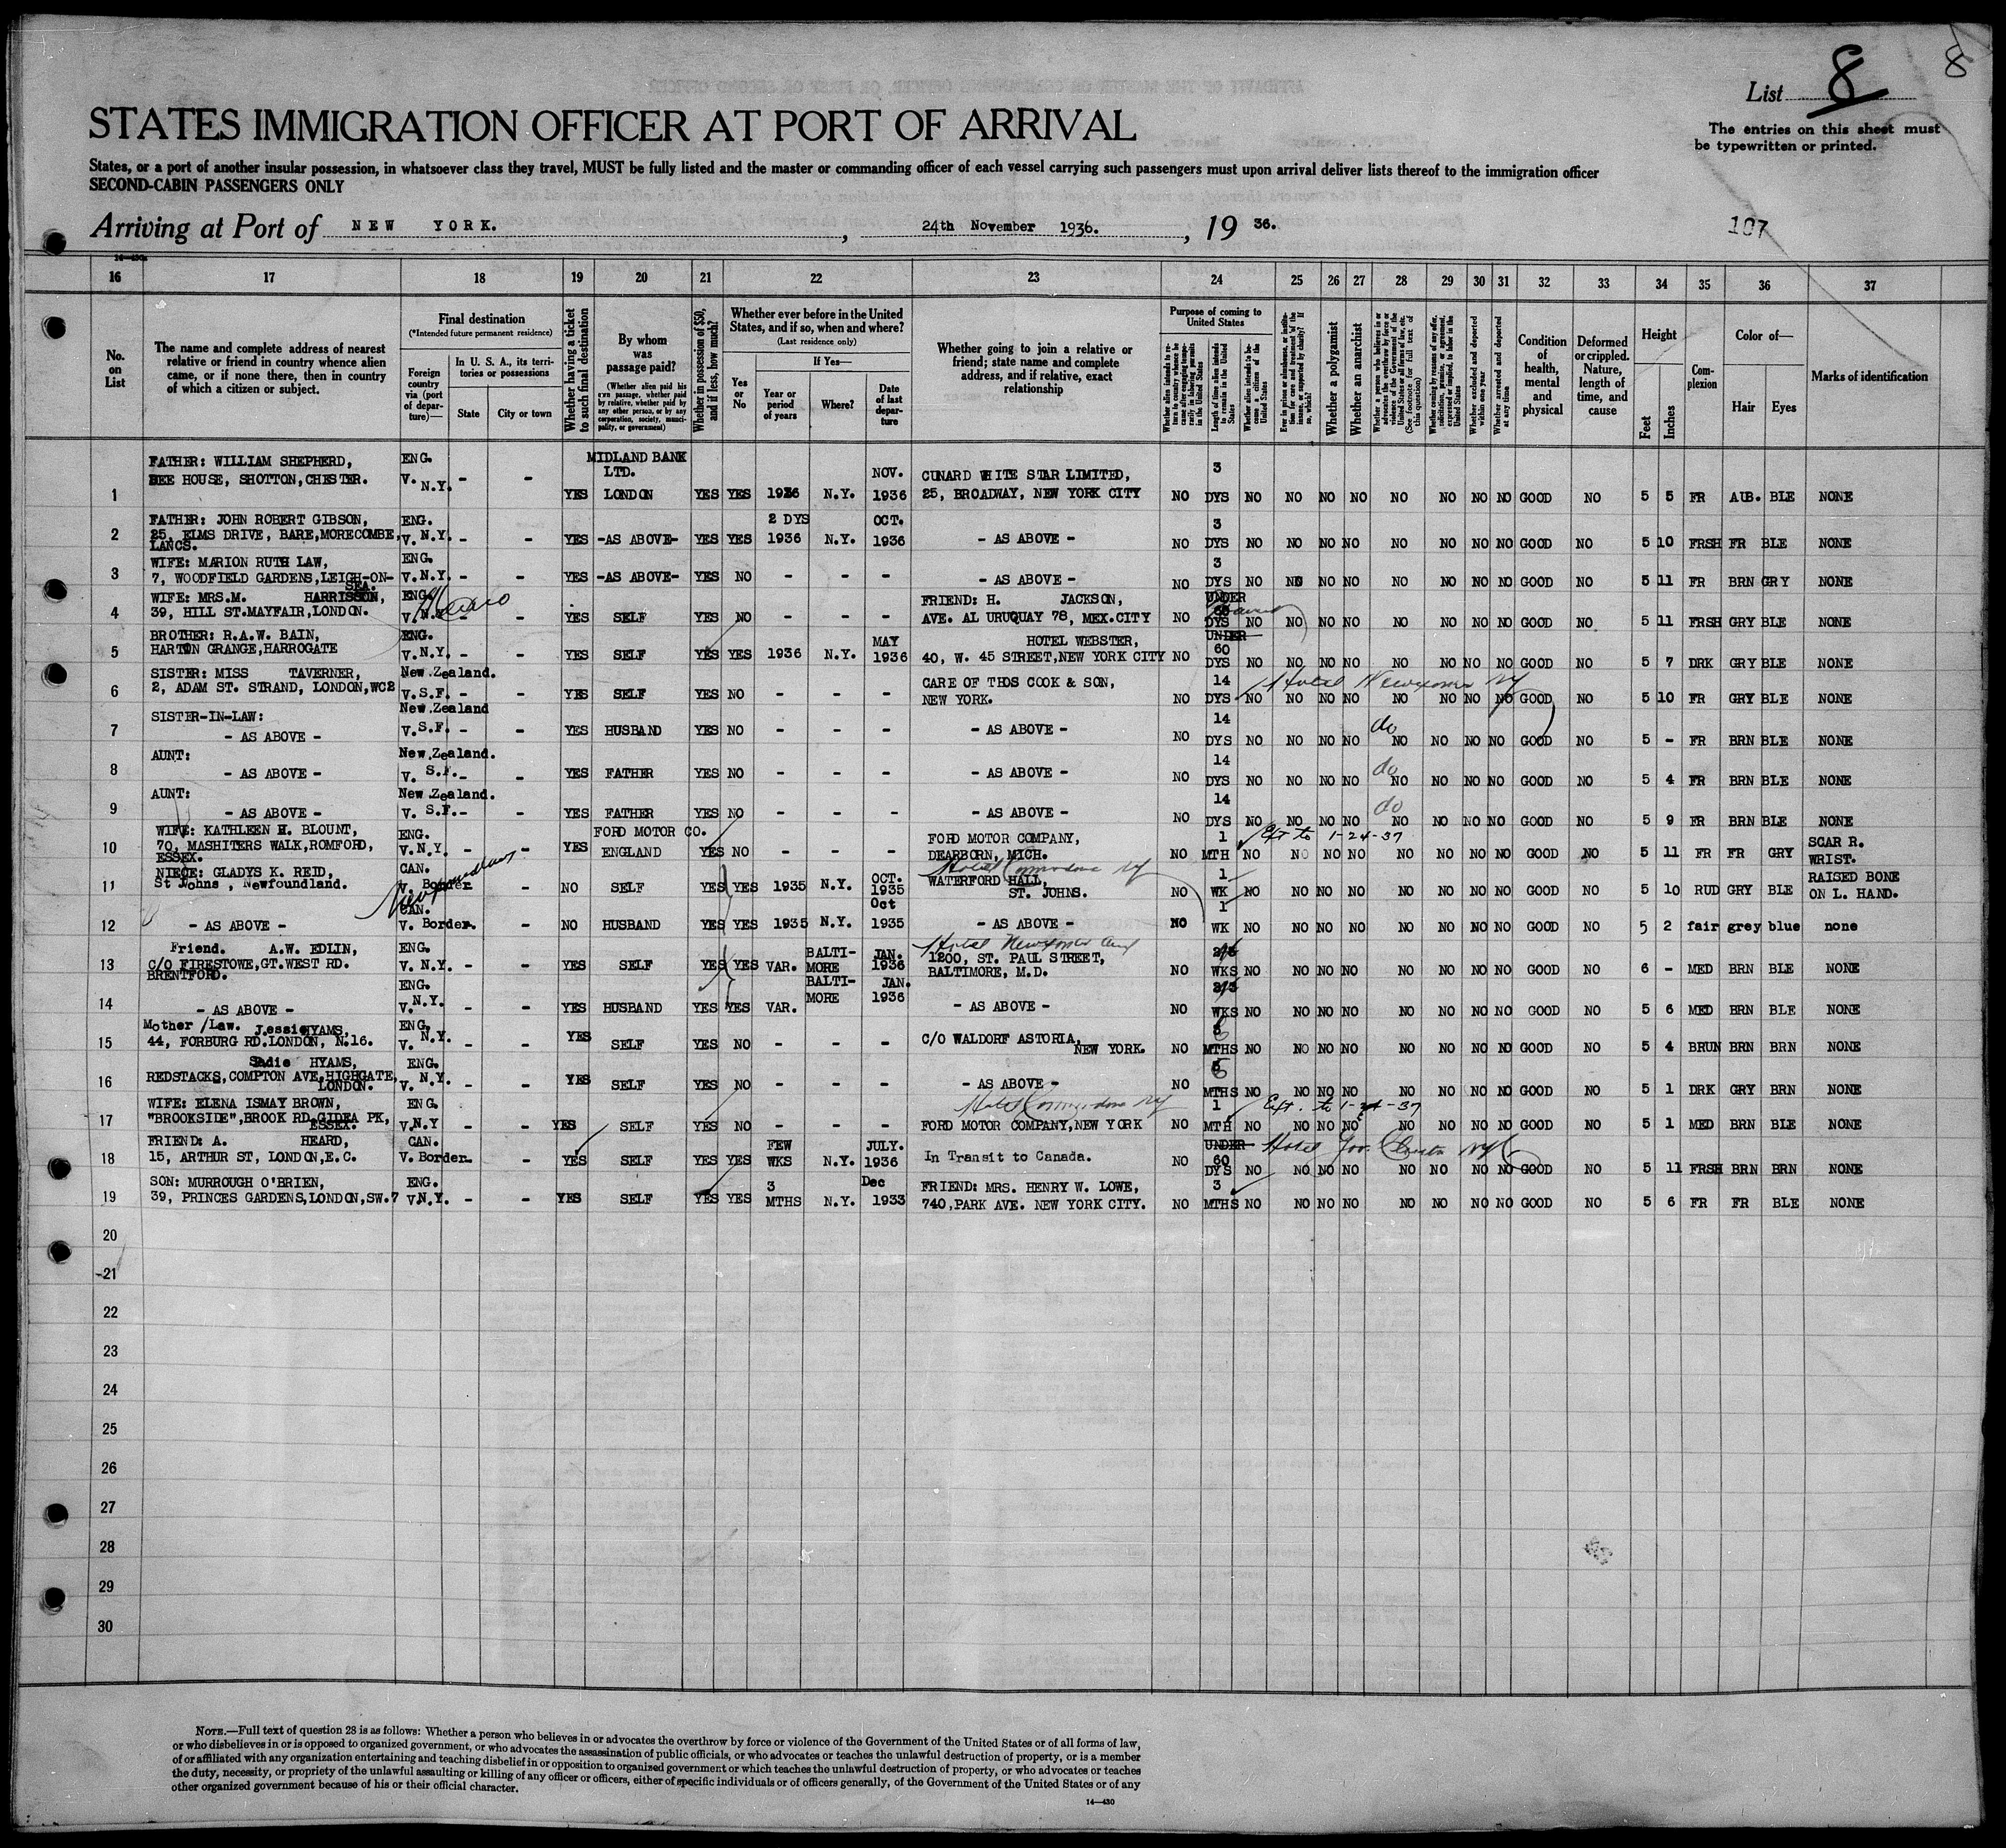 8
List 8
STATES IMMIGRATION OFFICER AT PORT OF ARRIVAL
The entries on this sheet must
be typewritten or printed.
States, or a port of another insular possession, in whatsoever class they travel, MUST be fully listed and the master or commanding officer of each vessel carrying such passengers must upon arrival deliver lists thereof to the immigration officer
SECOND-CABIN PASSENGERS ONLY
Arriving at Port of NEW YORK. , 24th November 1936. , 19 36.
107
14—430
16 17 18 19 20 21 22 23 24 25 26 27 28 29 30 31 32 33 34 35 36 37
No. on List
The name and complete address of nearest relative or friend in country whence alien came, or if none there, then in country of which a citizen or subject.
Final destination
(*Intended future permanent residence)
Foreign country via (port of departure)—
In U. S. A., its territories or possessions
State City or town
Whether having a ticket to such final destination
By whom was passage paid?
(Whether alien paid his own passage, whether paid by relative, whether paid by any other person, or by any corporation, society, municipality, or government)
Whether in possession of $50, and if less, how much?
Whether ever before in the United States, and if so, when and where?
(Last residence only)
Yes or No
If Yes—
Year or period of years
Where?
Date of last departure
Whether going to join a relative or friend; state name and complete address, and if relative, exact relationship
Purpose of coming to United States
Length of time alien intends to remain in the United States
Whether alien intends to become a citizen of the United States
Whether a polygamist
Whether an anarchist
(See footnote for full text of this question)
Whether excluded and deported within one year
Whether arrested and deported at any time
Condition of health, mental and physical
Deformed or crippled. Nature, length of time, and cause
Height
Feet Inches
Complexion
Color of—
Hair Eyes
Marks of identification
1 FATHER: WILLIAM SHEPHERD, DEE HOUSE, SHOTTON, CHESTER. ENG. V. N.Y. - - YES MIDLAND BANK LTD. LONDON YES YES 1936 N.Y. NOV. 1936 CUNARD WHITE STAR LIMITED, 25, BROADWAY, NEW YORK CITY NO 3 DYS NO NO NO NO NO NO NO NO GOOD NO 5 5 FR AUB. BLE NONE
2 FATHER: JOHN ROBERT GIBSON, 25, ELMS DRIVE, BARE, MORECOMBE, LANCS. ENG. V. N.Y. - - YES -AS ABOVE- YES YES 2 DYS 1936 N.Y. OCT. 1936 - AS ABOVE - NO 3 DYS NO NO NO NO NO NO NO NO GOOD NO 5 10 FRSH FR BLE NONE
3 WIFE: MARION RUTH LAW, 7, WOODFIELD GARDENS, LEIGH-ON-SEA. ENG. V.N.Y. - - YES -AS ABOVE- YES NO - - - - AS ABOVE - NO 3 DYS NO NO NO NO NO NO NO NO GOOD NO 5 11 FR BRN GRY NONE
4 WIFE: MRS.M. HARRISSON, 39, HILL ST.MAYFAIR, LONDON. ENG. V.N.Y. - - YES SELF YES NO - - - FRIEND: H. JACKSON, AVE. AL URUQUAY 78, MEX.CITY NO UNDER 60 DYS NO NO NO NO NO NO NO NO GOOD NO 5 11 FRSH GRY BLE NONE
5 BROTHER: R.A.W. BAIN, HARTON GRANGE, HARROGATE ENG. V.N.Y. - - YES SELF YES YES 1936 N.Y. MAY 1936 HOTEL WEBSTER, 40, W. 45 STREET, NEW YORK CITY NO UNDER 60 DYS NO NO NO NO NO NO NO NO GOOD NO 5 7 DRK GRY BLE NONE
6 SISTER: MISS TAVERNER, 2, ADAM ST. STRAND, LONDON, WC2 New Zealand. V.S.F. - - YES SELF YES NO - - - CARE OF THOS COOK & SON, NEW YORK. NO 14 DYS NO NO NO NO NO NO NO NO GOOD NO 5 10 FR GRY BLE NONE
7 SISTER-IN-LAW: - AS ABOVE - New.Zealand V.S.F. - - YES HUSBAND YES NO - - - - AS ABOVE - NO 14 DYS NO NO NO NO do NO NO NO NO GOOD NO 5 - FR BRN BLE NONE
8 AUNT: - AS ABOVE - New.Zealand. V. S.F. - - YES FATHER YES NO - - - - AS ABOVE - NO 14 DYS NO NO NO NO do NO NO NO NO GOOD NO 5 4 FR BRN BLE NONE
9 AUNT: - AS ABOVE - New Zealand. V. S.F. - - YES FATHER YES NO - - - - AS ABOVE - NO 14 DYS NO NO NO NO do NO NO NO NO GOOD NO 5 9 FR BRN BLE NONE
10 WIFE: KATHLEEN H. BLOUNT, 70, MASHITERS WALK, ROMFORD, ESSEX. ENG. V.N.Y. - - YES FORD MOTOR CO. ENGLAND YES NO - - - FORD MOTOR COMPANY, DEARBORN, MICH. NO 1 MTH Ext to 1-24-37 NO NO NO NO NO NO NO NO GOOD NO 5 11 FR FR GRY SCAR R. WRIST.
11 NIECE: GLADYS K. REID, St Johns, Newfoundland. CAN. V. Border. - NO SELF YES YES 1935 N.Y. OCT. 1935 Hotel Commodore NY WATERFORD HALL, ST. JOHNS. NO 1 WK NO NO NO NO NO NO NO NO GOOD NO 5 10 RUD GRY BLE RAISED BONE ON L. HAND.
12 - AS ABOVE - CAN. V. Border. - NO HUSBAND YES YES 1935 N.Y. Oct 1935 - AS ABOVE - NO 1 WK NO NO NO NO NO NO NO NO GOOD NO 5 2 fair grey blue none
13 Friend. A.W. EDLIN, C/O FIRESTOWE, GT.WEST RD. BRENTFORD. ENG. V. N.Y. - - YES SELF YES YES VAR. BALTIMORE JAN. 1936 1200, ST. PAUL STREET, BALTIMORE, M.D. NO WKS NO NO NO NO NO NO NO NO GOOD NO 6 - MED BRN BLE NONE
14 - AS ABOVE - ENG. V.N.Y. - - YES HUSBAND YES YES VAR. BALTIMORE JAN. 1936 - AS ABOVE - NO WKS NO NO NO NO NO NO NO NO GOOD NO 5 6 MED BRN BLE NONE
15 Mother/Law. Jessie HYAMS, 44, FORBURG RD.LONDON, N.16. ENG. V. N.Y. - - YES SELF YES NO - - - C/O WALDORF ASTORIA, NEW YORK. NO 6 MTHS NO NO NO NO NO NO NO NO GOOD NO 5 4 BRUN BRN BRN NONE
16 Sadie HYAMS, REDSTACKS, COMPTON AVE, HIGHGATE, LONDON. ENG. V. N.Y. - - YES SELF YES NO - - - - AS ABOVE - NO 6 MTHS NO NO NO NO NO NO NO NO GOOD NO 5 1 DRK GRY BRN NONE
17 WIFE: ELENA ISMAY BROWN, "BROOKSIDE", BROOK RD. GIDEA PK, ESSEX. ENG. V.N.Y - - YES SELF YES NO - - - Hotel Commodore NY FORD MOTOR COMPANY, NEW YORK NO 1 MTH Ext. to 1-24-37 NO NO NO NO NO NO NO NO GOOD NO 5 1 MED BRN BLE NONE
18 FRIEND: A. HEARD, 15, ARTHUR ST, LONDON, E.C. CAN. V. Border. - YES SELF YES YES FEW WKS N.Y. JULY. 1936 In Transit to Canada. NO UNDER 60 DYS Hotel Gov. Clinton NY NO NO NO NO NO NO NO NO GOOD NO 5 11 FRSH BRN BRN NONE
19 SON: MURROUGH O'BRIEN, 39, PRINCES GARDENS, LONDON, SW.7 ENG. V.N.Y. - - YES SELF YES YES 3 MTHS N.Y. Dec 1933 FRIEND: MRS. HENRY W. LOWE, 740, PARK AVE. NEW YORK CITY. NO 3 MTHS NO NO NO NO NO NO NO NO GOOD NO 5 6 FR FR BLE NONE
20
21
22
23
24
25
26
27
28
29
30
NOTE.—Full text of question 28 is as follows: Whether a person who believes in or advocates the overthrow by force or violence of the Government of the United States or of all forms of law,
or who disbelieves in or is opposed to organized government, or who advocates the assassination of public officials, or who advocates or teaches the unlawful destruction of property, or is a member
of or affiliated with any organization entertaining and teaching disbelief in or opposition to organized government or which teaches the unlawful destruction of property, or who advocates or teaches
the duty, necessity, or propriety of the unlawful assaulting or killing of any officer or officers, either of specific individuals or of officers generally, of the Government of the United States or of any
other organized government because of his or their official character.
14—430